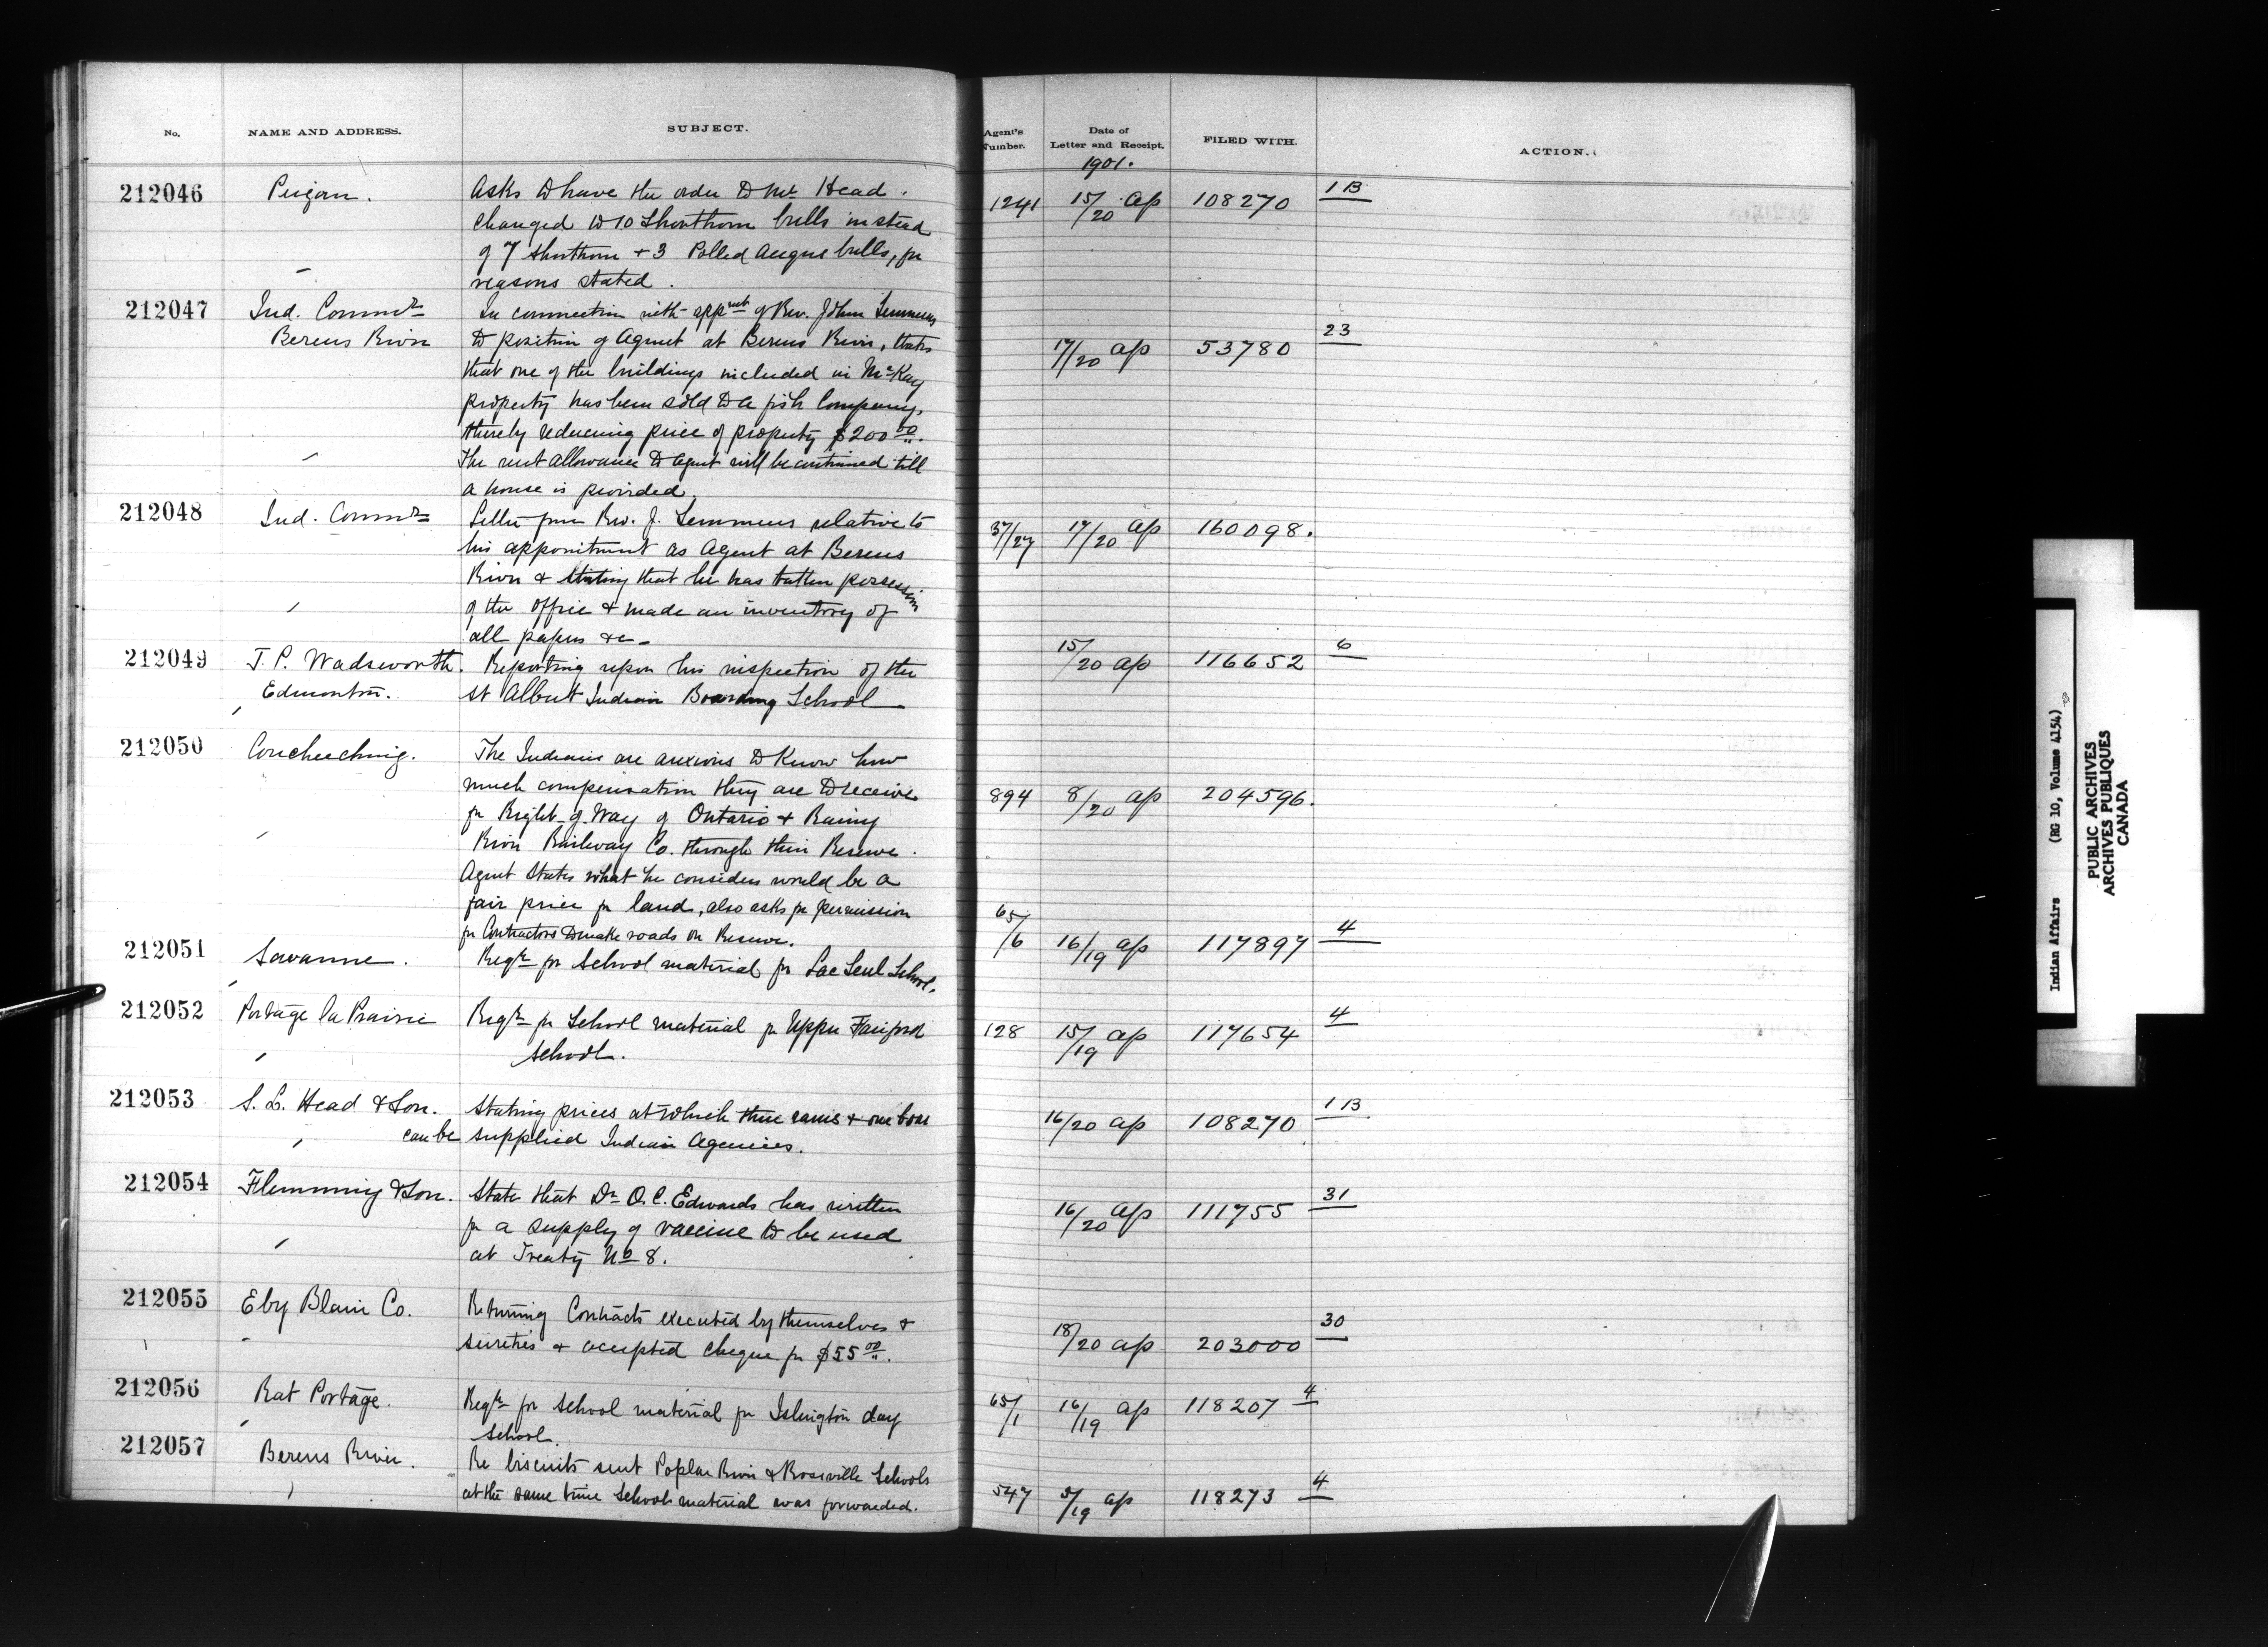 No. NAME AND ADDRESS. SUBJECT. Agent's Number. Date of Letter and Receipt. FILED WITH. ACTION.
1901.
212046 Peigan. Asks to have the order to Mr Head 1241 15/20 ap 108270 1B
changed to 10 Shorthorn bulls instead
of 7 Shorthorn + 3 Polled Angus bulls, for
reasons stated.
212047 Ind. Commr In connection with appmt of Rev. John Semmens
Berens River to position of Agent at Berens River, states 17/20 ap 53780 23
that one of the buildings included in McKay
property has been sold to a fish Company,
thereby reducing price of property $200 00.
The rent allowance to agent will be continued till
a house is provided.
212048 Ind. Commr Letter from Rev. J. Semmens relative to 37/27 17/20 ap 160098.
his appointment as Agent at Berens
River & stating that he has taken possession
of the office & made an inventory of
all papers &c
212049 T. P. Wadsworth. Reporting upon his inspection of the 15/20 ap 116652 6
Edmonton. St Albert Indian Boarding School
212050 Coucheeching. The Indians are anxious to know how
much compensation they are to receive 894 8/20 ap 204596.
for Right of Way of Ontario & Rainy
River Railway Co. through their Reserve.
Agent states what he considers would be a
fair price for land, also asks for permission
for Contractors to make roads on Reserve.
212051 Savanne. Reqn for School material for Lac Seul School. 65/6 16/19 ap 117897 4
212052 Portage la Prairie Reqn for School material for Upper Fairford 128 15/19 ap 117654 4
School.
212053 S. L. Head & Son. Stating prices at which three rams & one boar 16/20 ap 108270 1B
can be supplied Indian Agencies.
212054 Flemming & Son. State that Dr O. C. Edwards has written 16/20 ap 111755 31
for a supply of vaccine to be used
at Treaty No 8.
212055 Eby Blain Co. Returning Contracts executed by themselves &
sureties & accepted cheque for $55 00. 18/20 ap 203000 30
212056 Rat Portage. Reqn for School material for Islington day 65/1 16/19 ap 118207 4
School.
212057 Berens River. Re biscuits sent Poplar River & Rossville Schools
at the same time School material was forwarded. 547 5/19 ap 118273 4
Indian Affairs (RG 10, Volume 4154)
PUBLIC ARCHIVES
ARCHIVES PUBLIQUES
CANADA